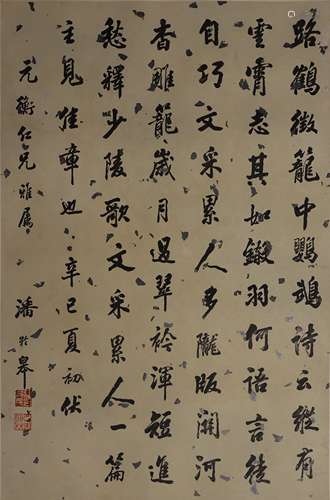 路鶴徵籠中鸚鵡詩云縱有
雲霄志其如鎩羽何語言徒
自巧文采累人多隴版關河
杳雕籠歲月過翠衿渾短進
愁釋少陵歌文采累人一篇
主見佳嘩也辛巳夏初伏
元衡仁兄雅屬 潘齡皋